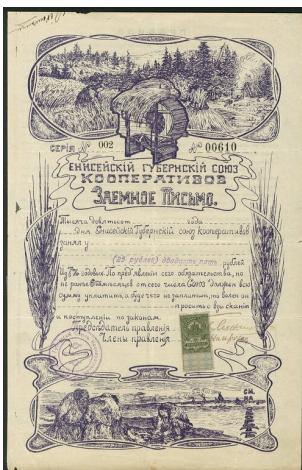 СЕРІЯ № 002 № 00610
ЕНИСЕЙСКІЙ ГУБЕРНСКІЙ СОЮЗ
КООПЕРАТИВОВЪ
ЗАЕМНОЕ ПИСЬМО.
Тысяча девятьсот года
дня Енисейскій Губернскій союз кооперативовъ
занял у
(25 рублей) двадцать пять рублей
годовых. По пред'явленіи сего обязательства, но
не ранѣе месяцев от сего числа Союз должен всю
сумму уплатить, а буде чего не заплатит, то волен он
просить о взысканіи
и поступленіи по законам.
Председатель правленія
Члены правленія